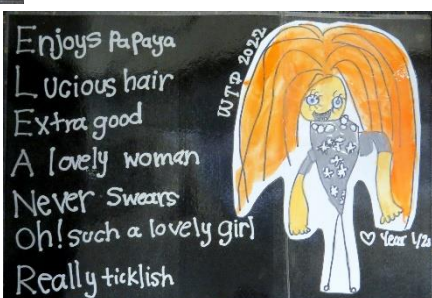 Enjoys Papaya
Lucious hair
Extra good
A lovely woman
Never Swears
Oh! such a lovely girl
Really ticklish
WTP 2022
♡ Year 1/2s